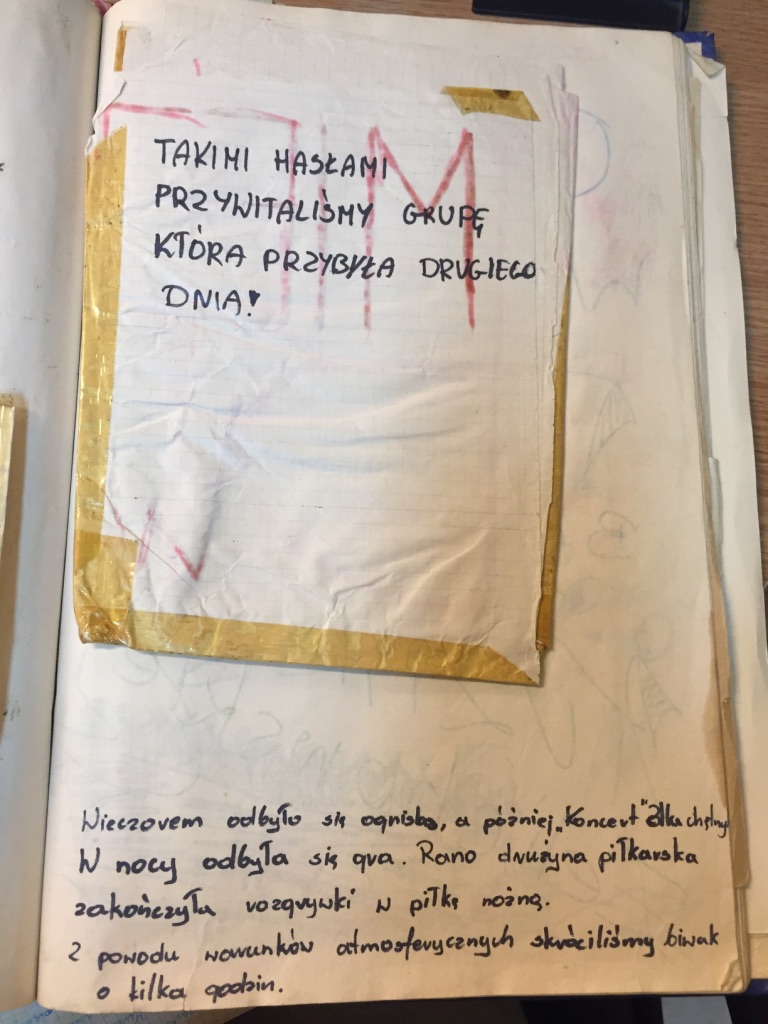 TAKIMI HASŁAMI
PRZYWITALIŚMY GRUPĘ
KTÓRA PRZYBYŁA DRUGIEGO
DNIA!
Wieczorem odbyło się ognisko, a później „Koncert" dla chętnych
W nocy odbyła się gra. Rano drużyna piłkarska
zakończyła rozgrywki w piłkę nożną.
Z powodu warunków atmosferycznych skróciliśmy biwak
o kilka godzin.